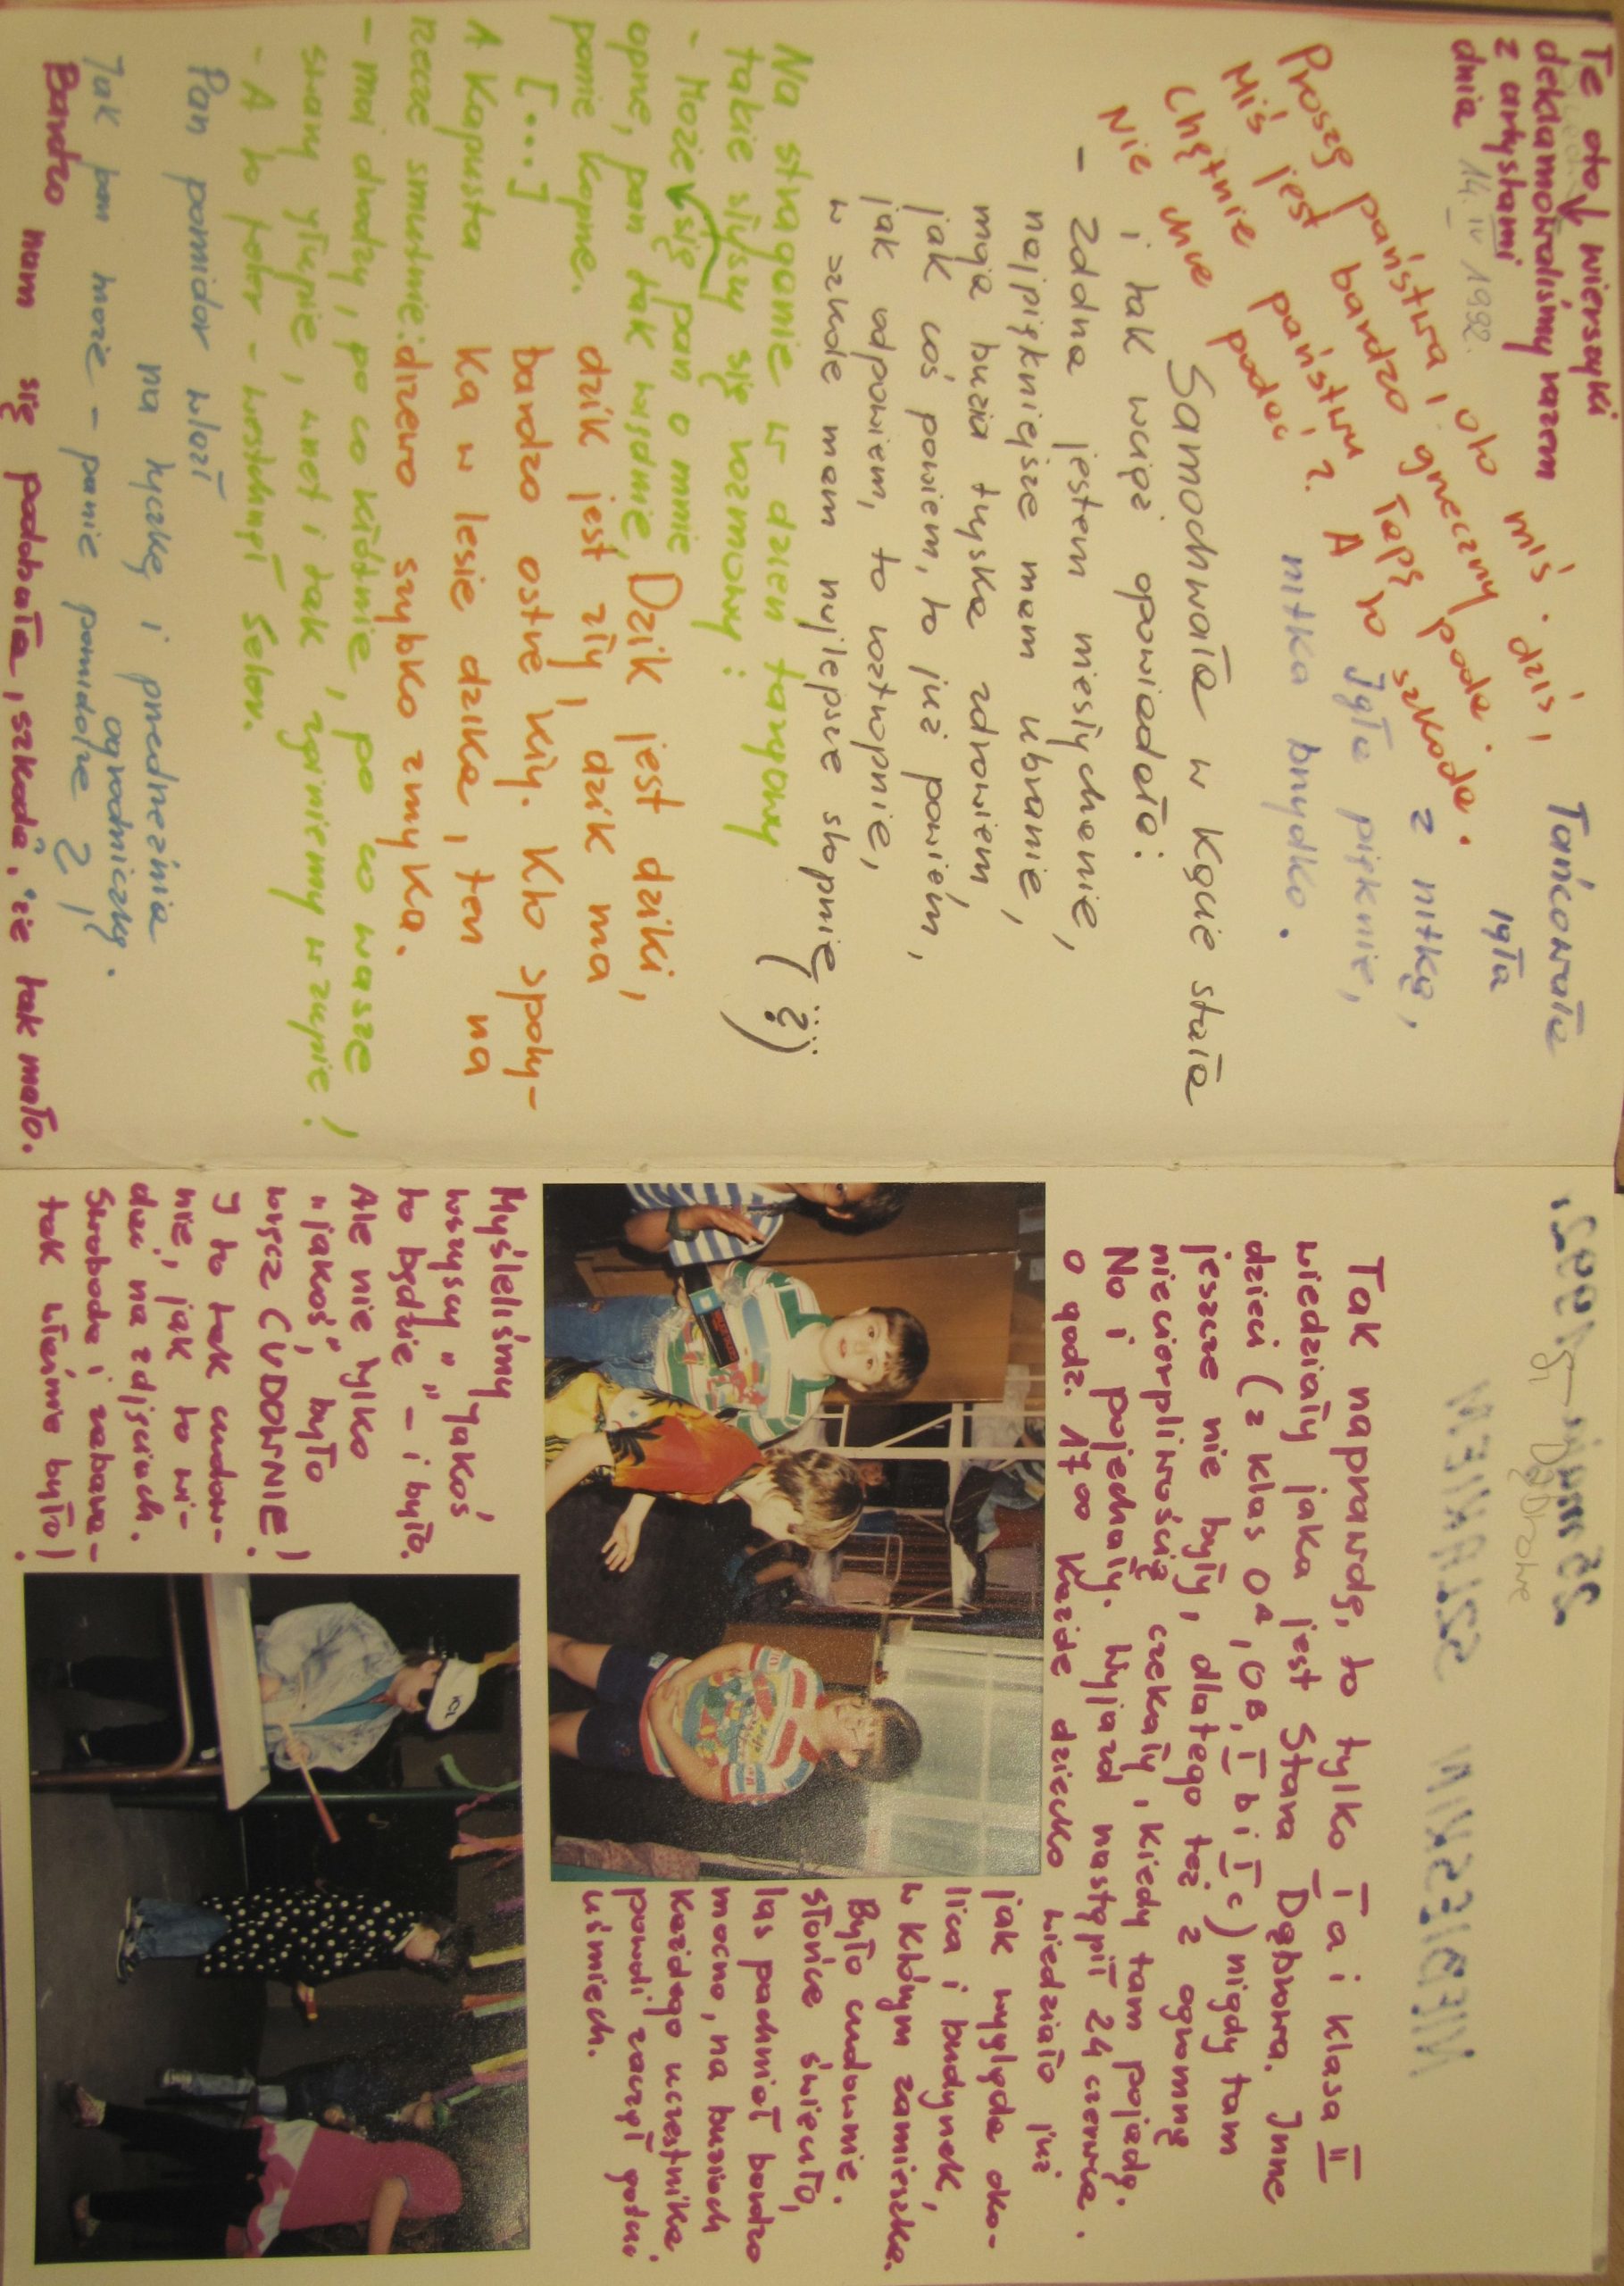 Te oto wierszyki
deklamowaliśmy razem
z artystami
dnia 14. IV 1992.
Proszę państwa, oto miś.
Miś jest bardzo grzeczny dziś,
Chętnie państwu łapę poda.
Nie chce podać? A to szkoda.
Tańcowała
igła
z nitką,
Igła pięknie,
nitka brzydko.
Samochwała w kącie stała
i tak wciąż opowiadała:
- Zdolna jestem niesłychanie,
najpiękniejsze mam ubranie,
moja buzia tryska zdrowiem,
jak coś powiem, to już powiem,
jak odpowiem, to roztropnie,
w szkole mam najlepsze stopnie (!?)
Na straganie w dzień targowy
takie słyszy się rozmowy:
- Może się pan o mnie
oprze, pan tak więdnie,
panie Koprze.
[...]
A Kapusta
rzecze smutnie:
- moi drodzy, po co kłótnie, po co wasze
swary głupie, wnet i tak zginiemy w zupie!
- A to feler - westchnął Seler.
Dzik jest dziki,
dzik jest zły, dzik ma
bardzo ostre kły. Kto spoty-
ka w lesie dzika, ten na
drzewo szybko zmyka.
Pan pomidor wlazł
na tyczkę i przedrzeźnia
ogrodniczkę.
Jak pan może - panie pomidorze?!
Bardzo nam się podobała, szkoda, że tak mało.
24 czerwca 1992r.
Dąbrowa
NIEBIESKIM
Tak naprawdę, to tylko I a i klasa II
wiedziały jaka jest Stara Dąbrowa. Inne
dzieci (z klas 0A, 0B, I b i I c) nigdy tam
jeszcze nie były, dlatego też z ogromną
niecierpliwością czekały, kiedy tam pojadą.
No i pojechały. Wyjazd nastąpił 24 czerwca.
o godz. 17oo Każde dziecko wiedziało już
jak wygląda oko-
lica i budynek,
w którym zamieszka.
Było cudownie.
Słońce świeciło,
las pachniał bardzo
mocno, na buziach
każdego uczestnika
powoli zaczął gościć
uśmiech.
Myśleliśmy
wszyscy "jakoś
to będzie" - i było.
Ale nie tylko
"jakoś", było
wręcz CUDOWNIE!
I to tak cudow-
nie, jak to wi-
dać na zdjęciach.
Swoboda i zabawa -
tak właśnie było!